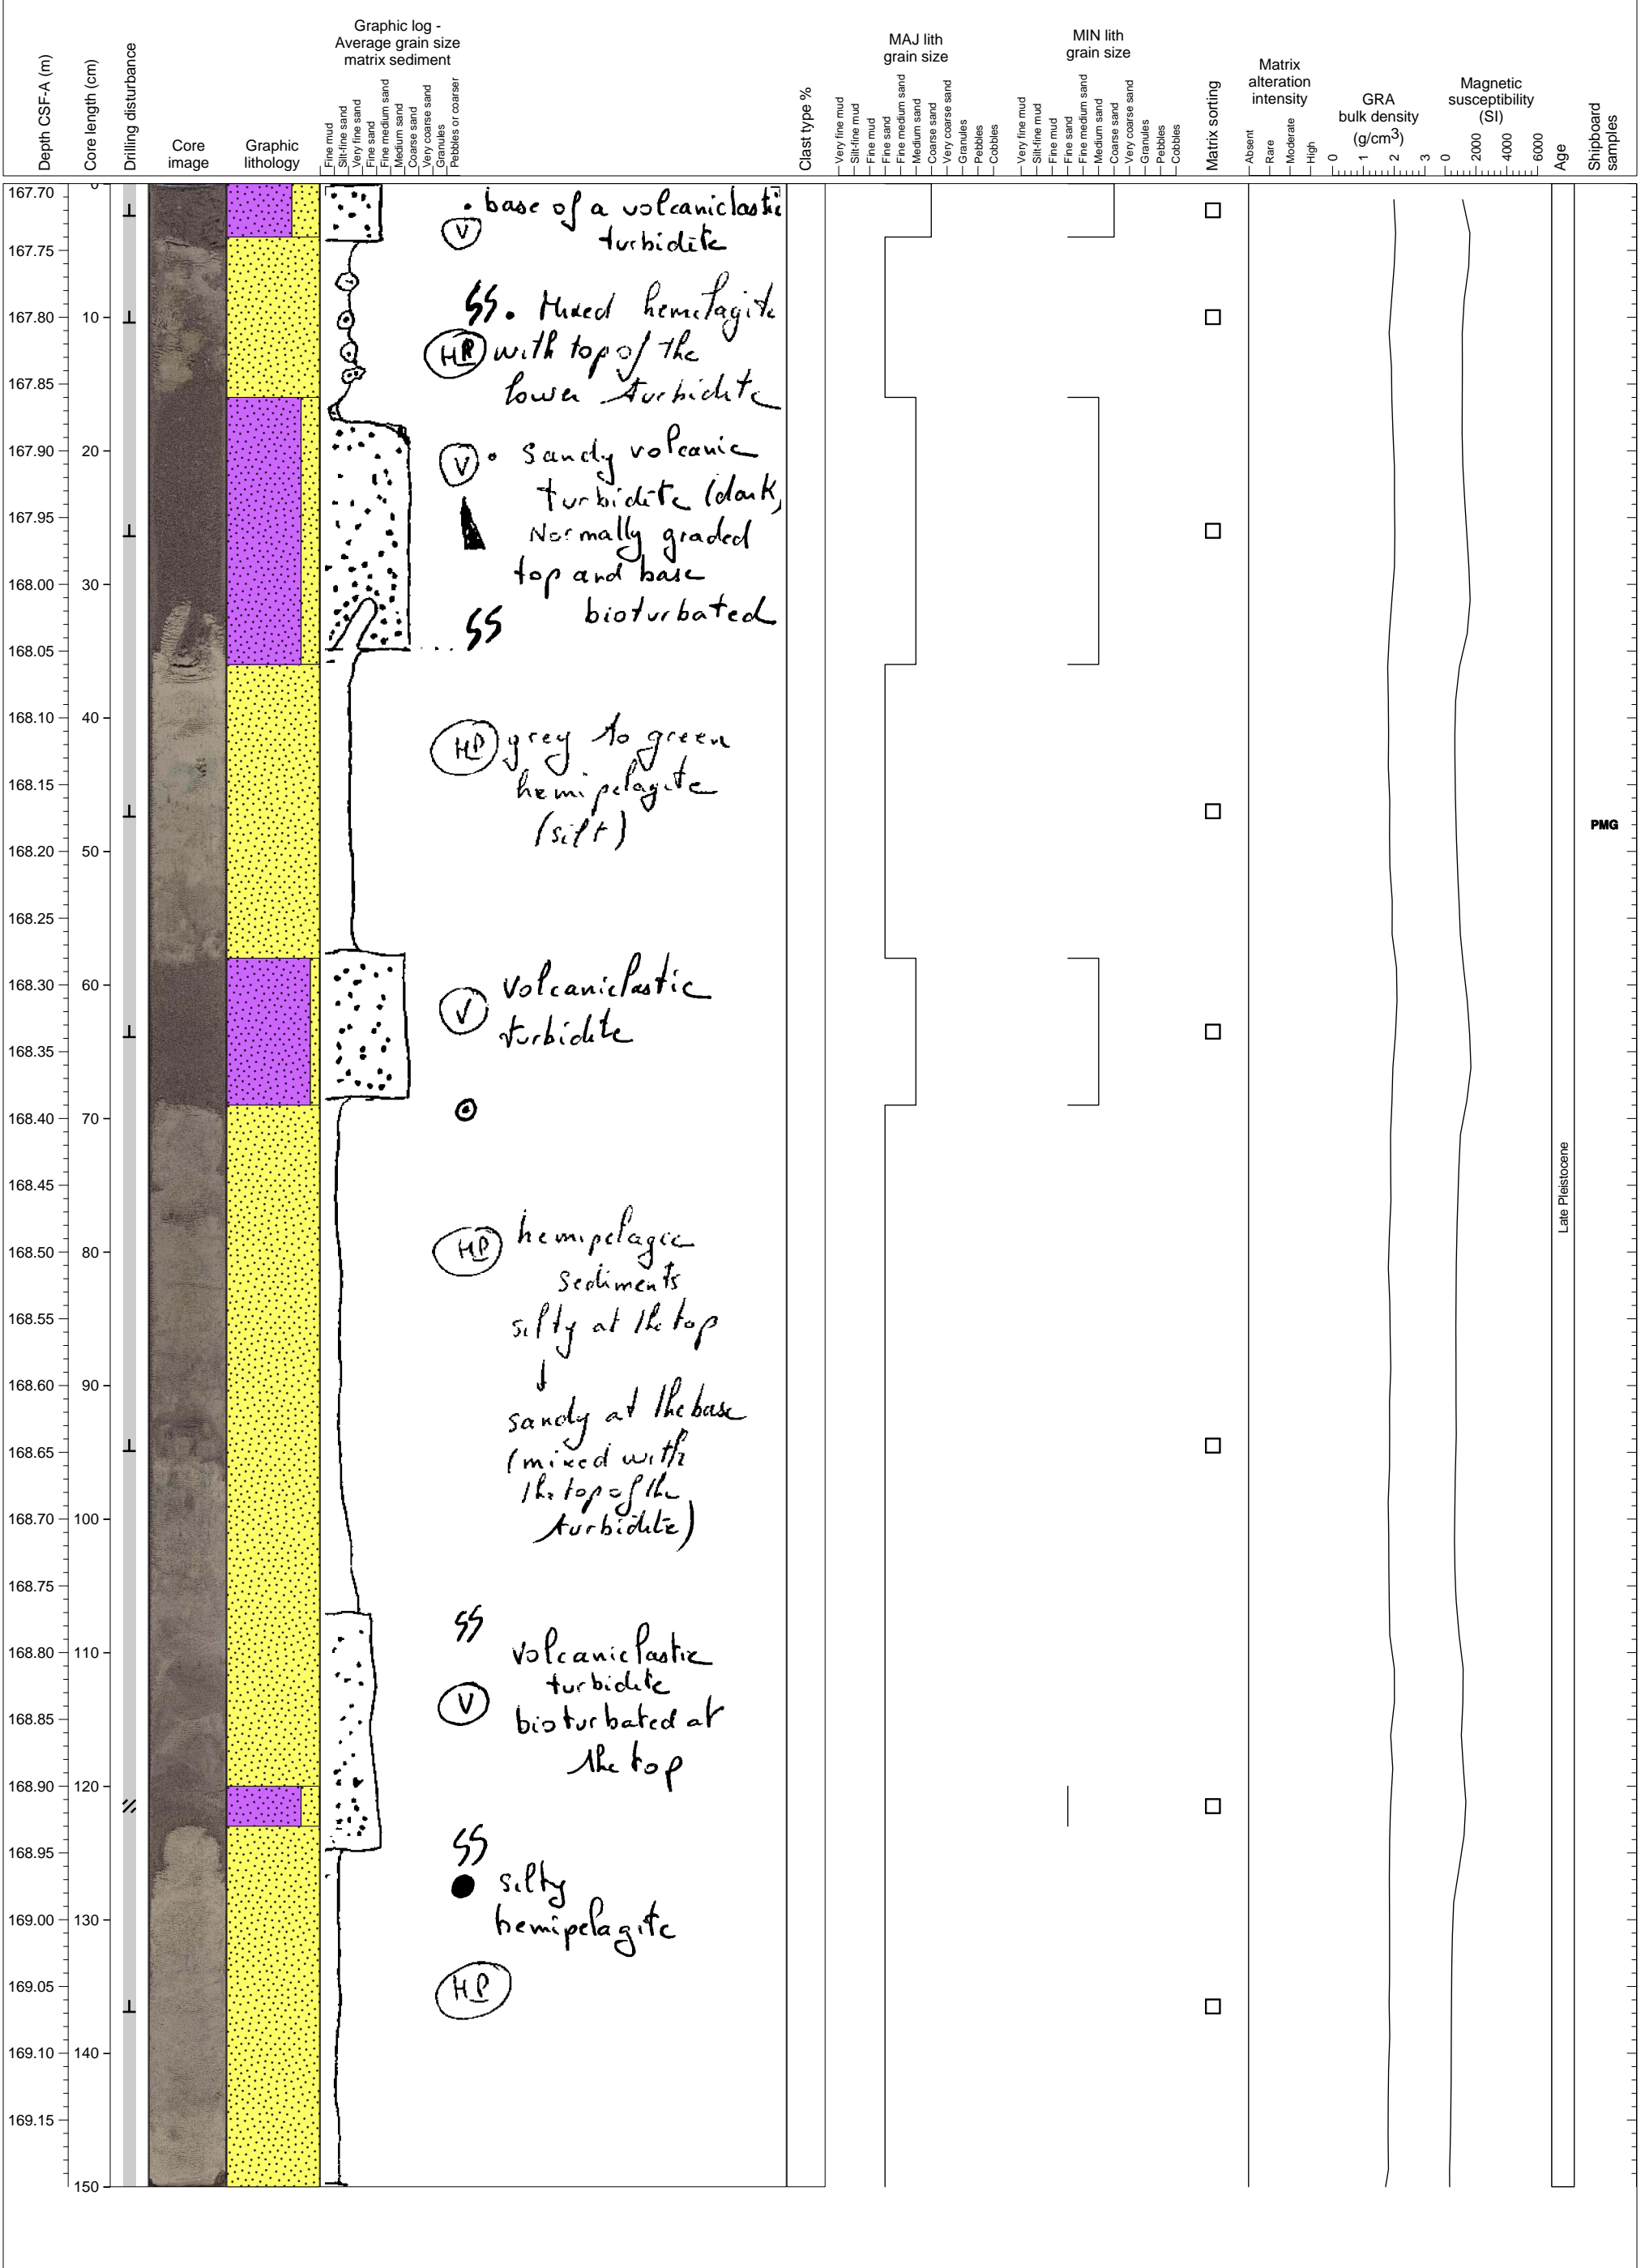 Depth CSF-A (m)
Core length (cm)
Drilling disturbance
Core
image
Graphic
lithology
Graphic log -
Average grain size
matrix sediment
Fine mud
Silt-fine sand
Very fine sand
Fine sand
Fine medium sand
Medium sand
Coarse sand
Very coarse sand
Granules
Pebbles or coarser
Clast type %
MAJ lith
grain size
Very fine mud
Silt-fine mud
Fine mud
Fine sand
Fine medium sand
Medium sand
Coarse sand
Very coarse sand
Granules
Pebbles
Cobbles
MIN lith
grain size
Very fine mud
Silt-fine mud
Fine mud
Fine sand
Fine medium sand
Medium sand
Coarse sand
Very coarse sand
Granules
Pebbles
Cobbles
Matrix sorting
Matrix
alteration
intensity
Absent
Rare
Moderate
High
GRA
bulk density
(g/cm3)
0 1 2 3
Magnetic
susceptibility
(SI)
0 2000 4000 6000
Age
Shipboard
samples
167.70
167.75
167.80
167.85
167.90
167.95
168.00
168.05
168.10
168.15
168.20
168.25
168.30
168.35
168.40
168.45
168.50
168.55
168.60
168.65
168.70
168.75
168.80
168.85
168.90
168.95
169.00
169.05
169.10
169.15
0
10
20
30
40
50
60
70
80
90
100
110
120
130
140
150
• base of a volcaniclastic
V turbidite
SS • Mixed hemelagite
HP with top of the
lower turbidite
V • Sandy volcanic
turbidite (dark,
Normally graded
top and base
bioturbated
SS
HP grey to green
hemipelagite
(silt)
V volcaniclastic
turbidite
HP hemipelagic
sediments
silty at the top
↓
sandy at the base
(mixed with
the top of the
turbidite)
SS
volcaniclastic
turbidite
V bioturbated at
the top
SS
silty
hemipelagite
HP
Late Pleistocene
PMG